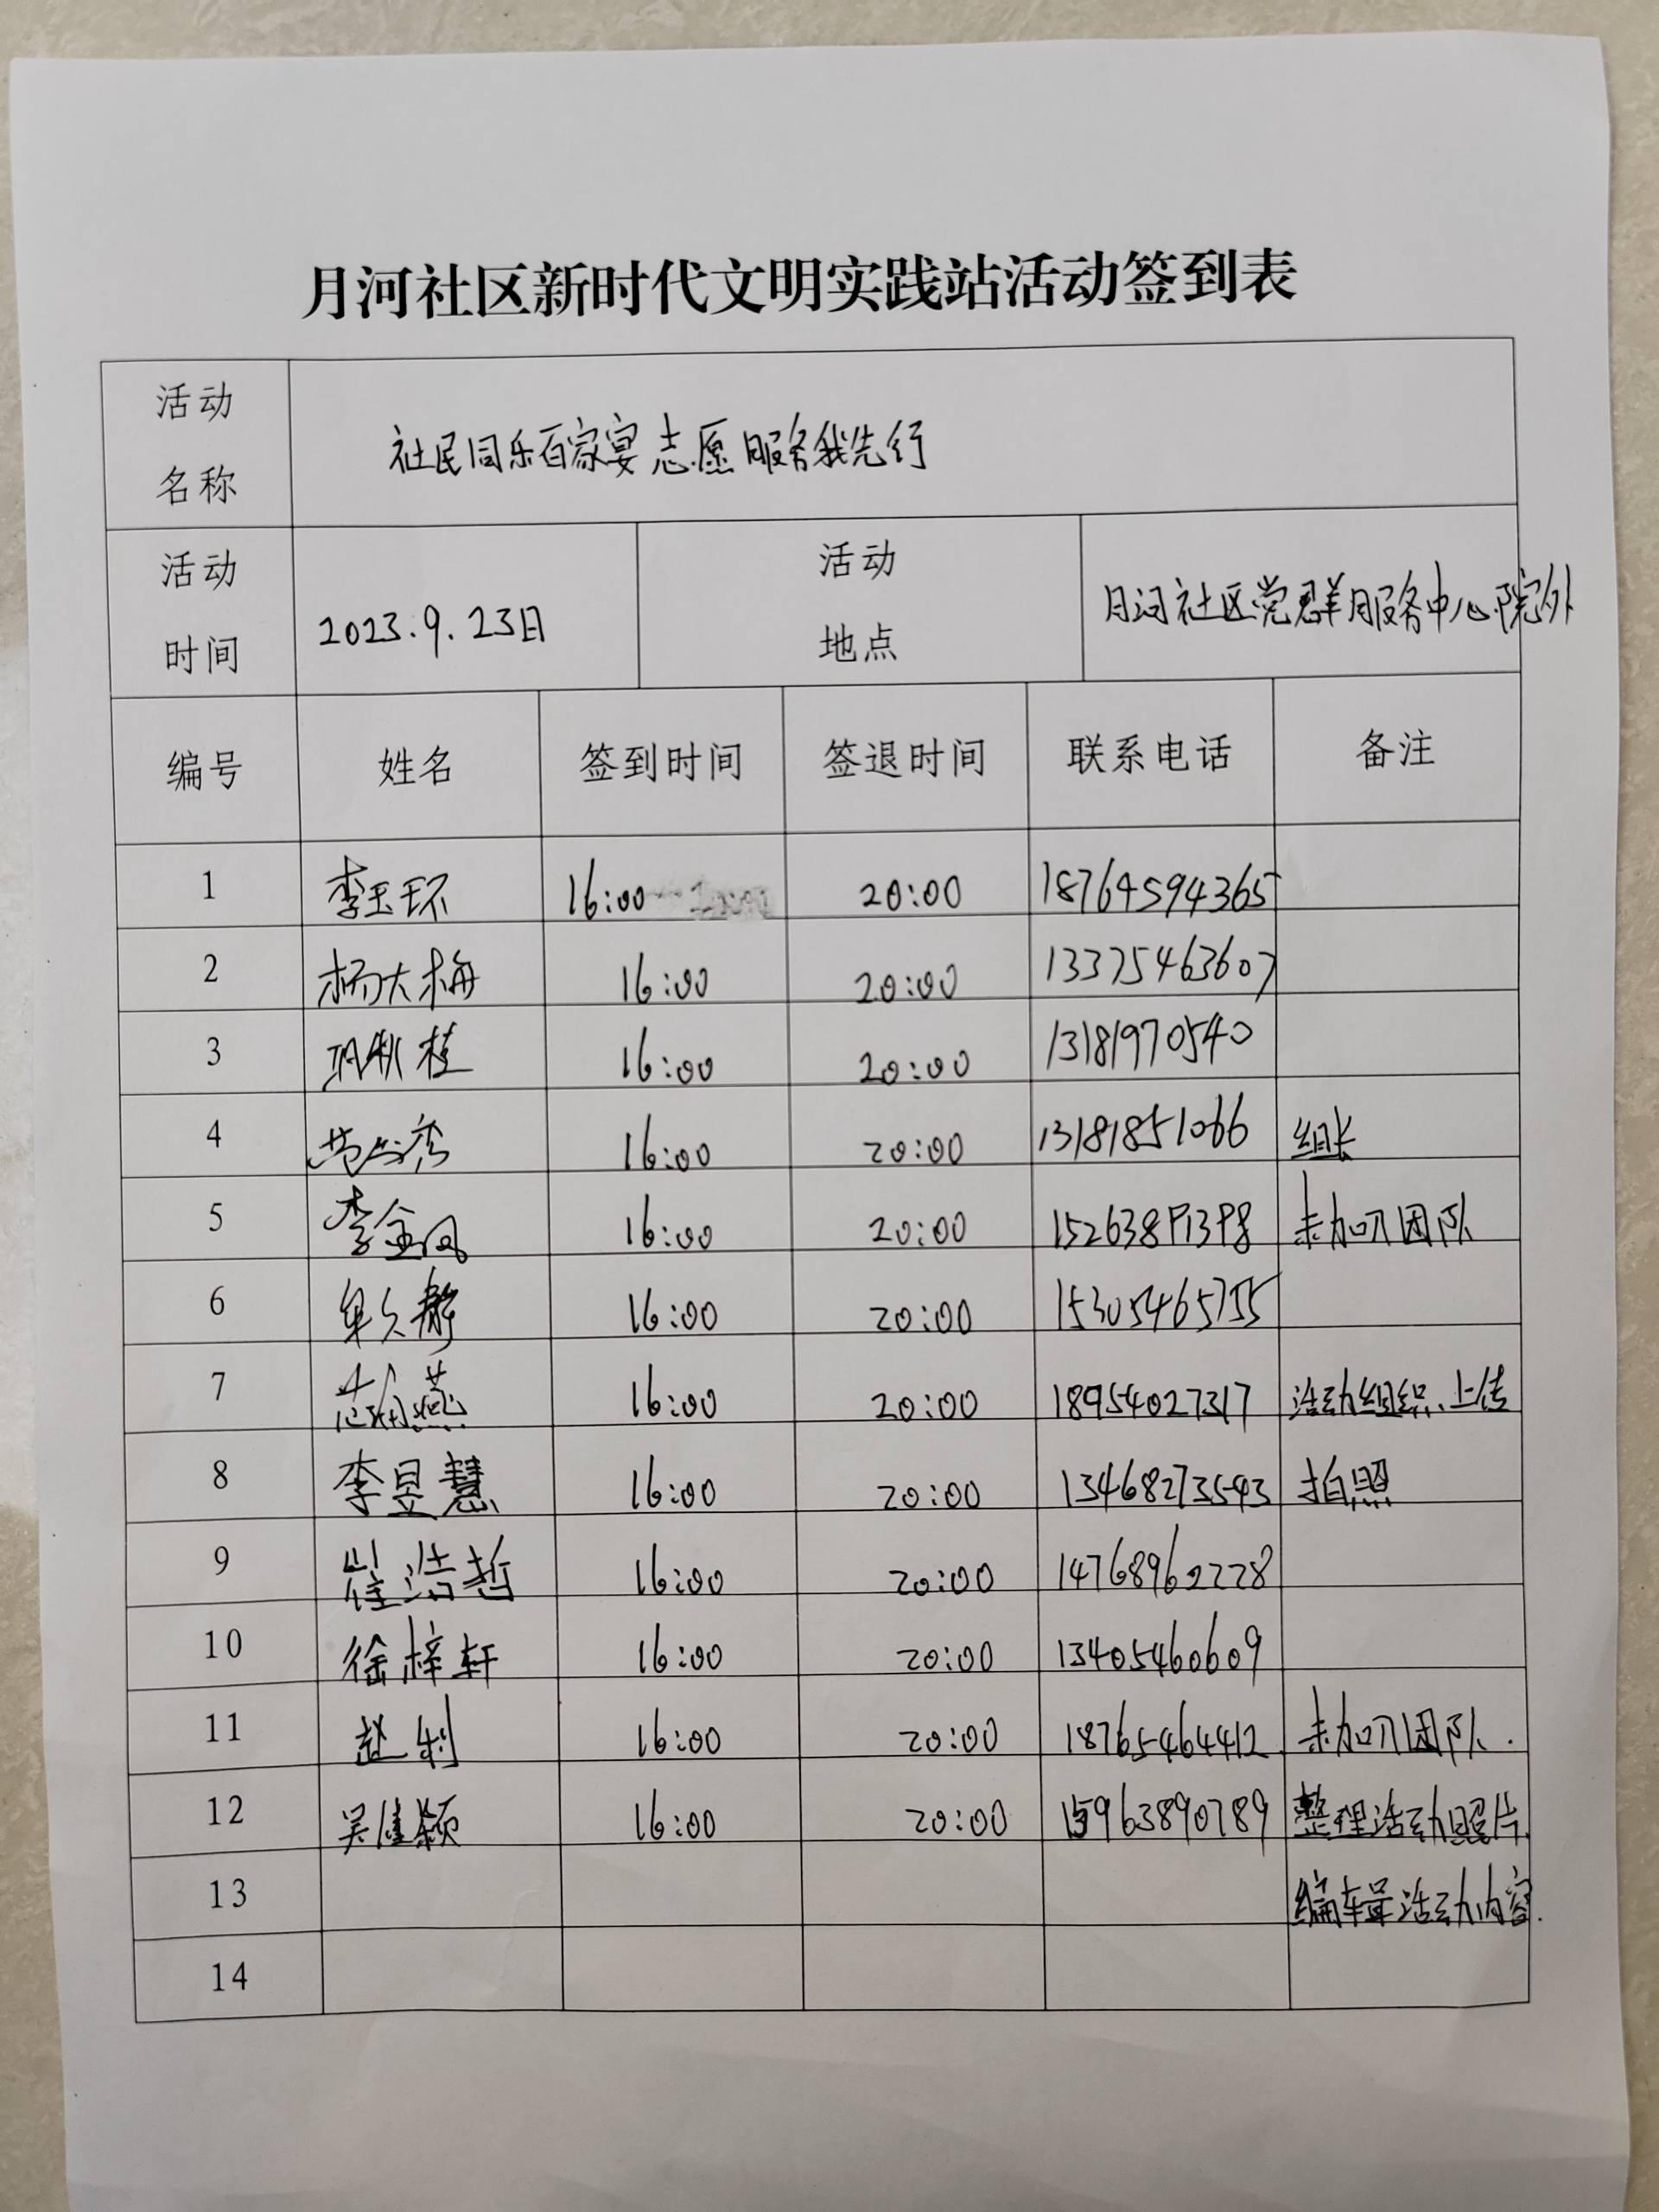 月河社区新时代文明实践站活动签到表
活动名称 社民同乐百家宴 志愿服务我先行
活动时间 2023.9.23日 活动地点 月河社区党群服务中心院外
编号 姓名 签到时间 签退时间 联系电话 备注
1 李玉环 16:00 20:00 18764594365
2 杨大梅 16:00 20:00 13375463607
3 巩秋桂 16:00 20:00 13181970540
4 16:00 20:00 13181851066 组长
5 李金凤 16:00 20:00 15263891398 未加入团队
6 单久静 16:00 20:00 15305465755
7 范炳燕 16:00 20:00 18954027317 活动组织、上传
8 李昱慧 16:00 20:00 13468273543 拍照
9 崔浩哲 16:00 20:00 14768962228
10 徐梓轩 16:00 20:00 13405460609
11 赵利 16:00 20:00 18765464412 未加入团队.
12 吴佳颖 16:00 20:00 15963890789 整理活动照片.
13 编辑活动内容.
14